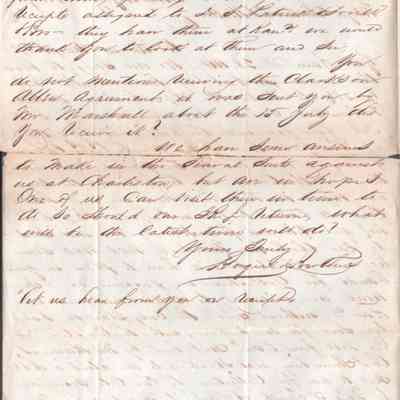 receipts assigned to
they have them at hand we would
thank you to look at them and see
You
do not mention receiving the Clarkson
Agreement it was sent you by
Mr Marshall about the 15 July did
You receive it?
We have some answers
to made in the several suits against
us at Charleston, but are in hopes
One of us Can visit there in time to
do so Should our return, what
will be the latest time will do?
Yours Truly
Let us hear from you on receipt